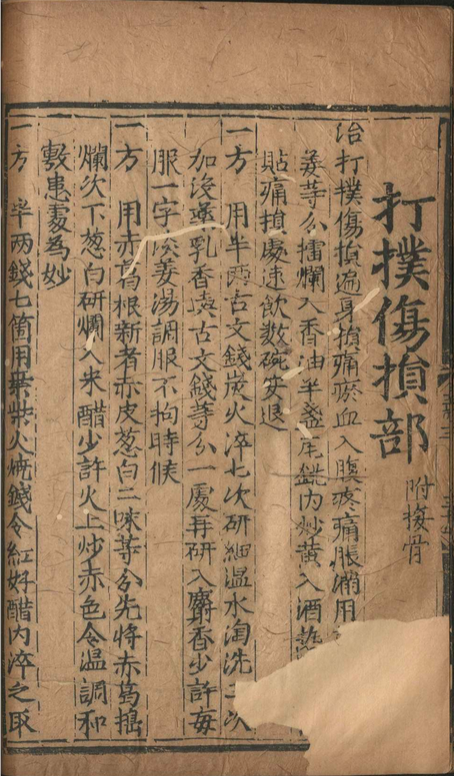 打撲傷損部 附接骨
治打撲傷損遍身損痛瘀血入腹疼痛脹滿用
姜等分擂爛入香油半盞瓦銚內炒黃入酒熱
貼痛損處速飲數碗安退
一方 用半兩古文錢炭火淬七次研細溫水淘洗二次
加沒藥乳香與古文錢等分一處再研入麝香少許每
服一字淡姜湯調服不拘時候
一方 用赤葛根新者赤皮葱白二味等分先將赤葛搗
爛次下葱白研爛入米醋少許火上炒赤色令溫調和
敷患處為妙
一方 半兩錢七箇用桑柴火燒錢令紅好醋內淬之取